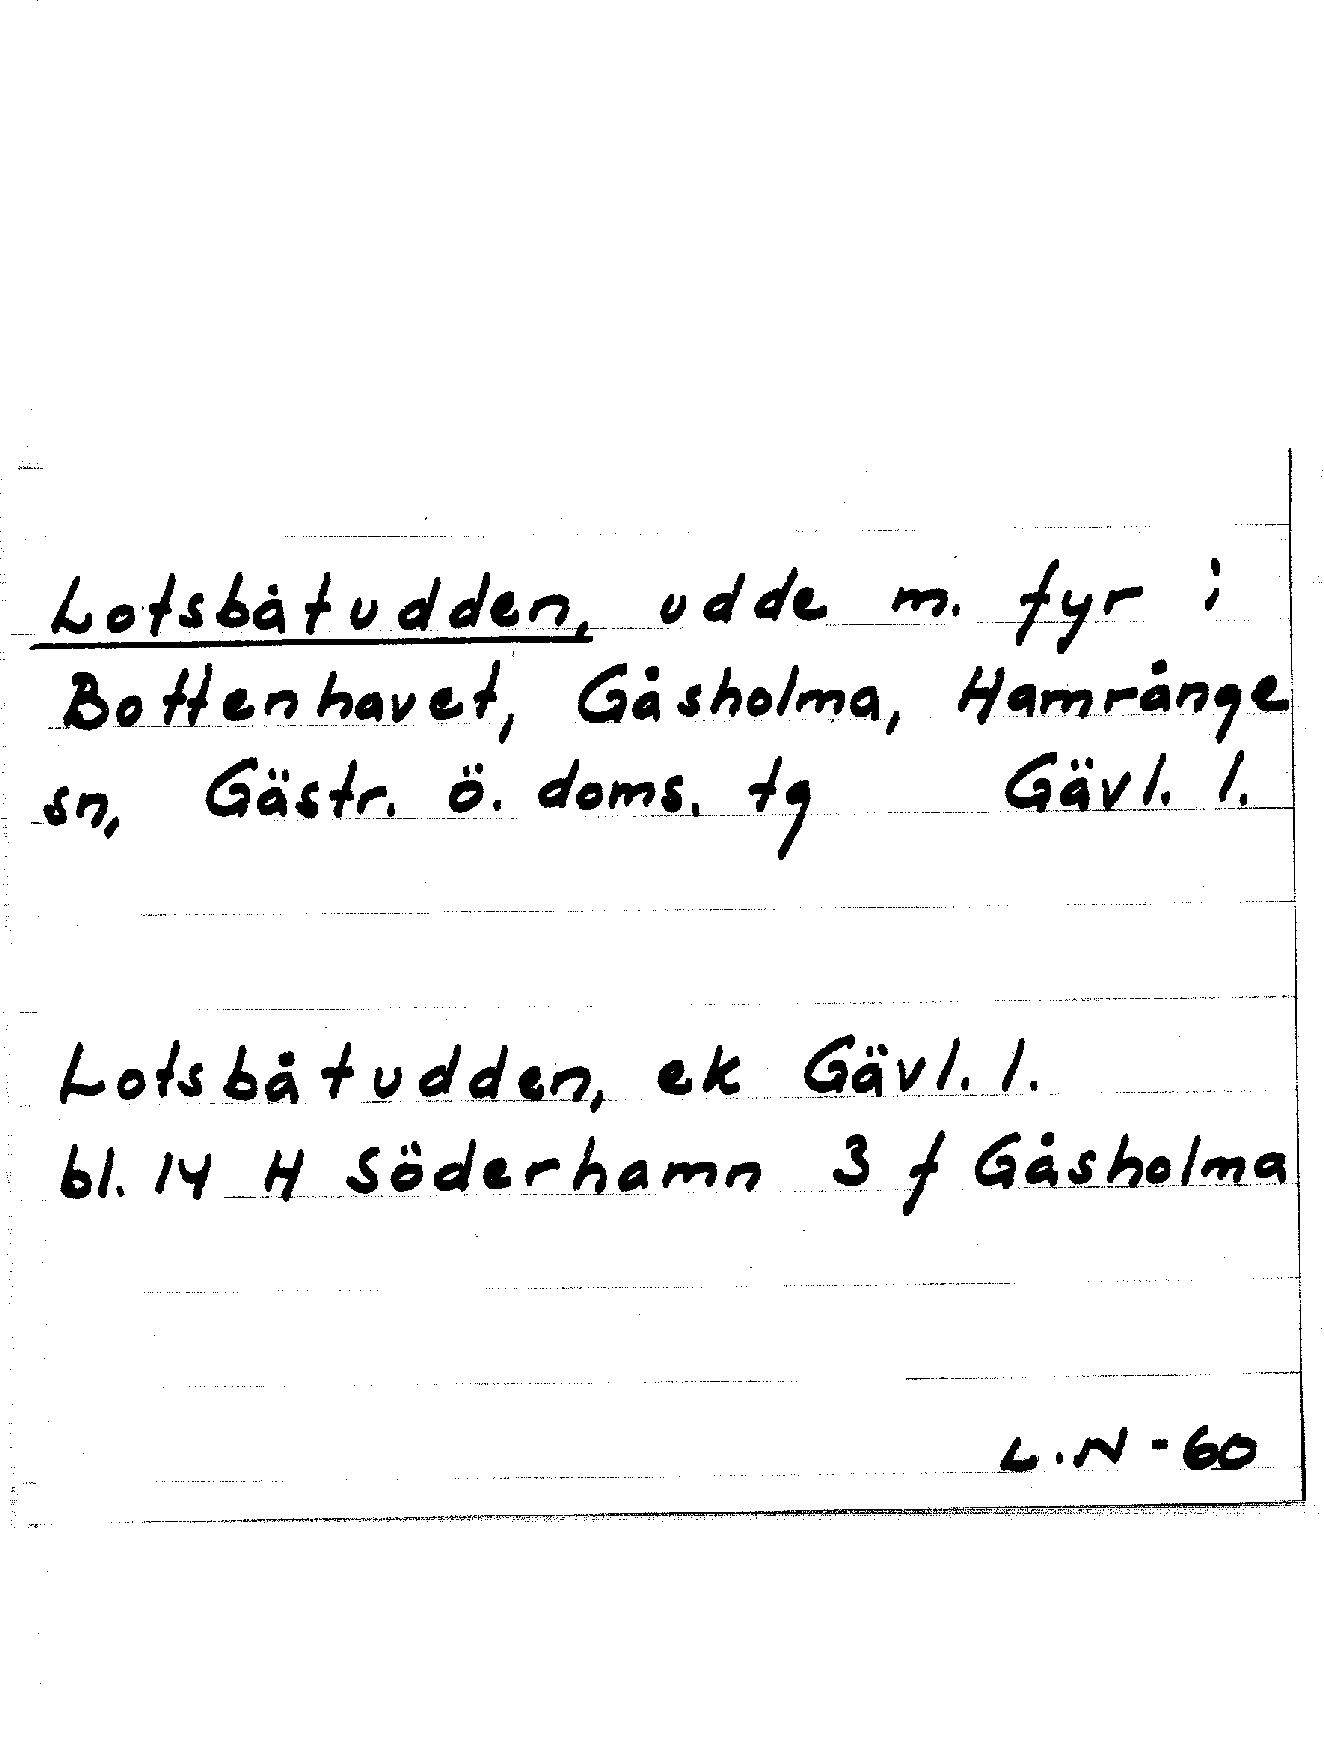 Lotsbåtudden, udde m. fyr i
Bottenhavet, Gåsholma, Hamrånge
sn, Gästr. ö. doms. tg Gävl. l.
Lotsbåtudden, ek Gävl. l.
bl. 14 H Söderhamn 3 f Gåsholma
L.N - 60